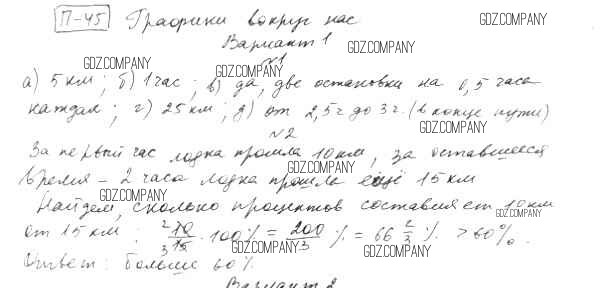 П-45 Графики вокруг нас GDZ.COMPANY
Вариант 1 GDZ.COMPANY
GDZ.COMPANY №1
а) 5 км; б) 1 час; в) да, две остановки на 0,5 часа
GDZ.COMPANY GDZ.COMPANY
каждая; г) 25 км; д) от 2,5 ч до 3 ч. (в конце пути)
№2 GDZ.COMPANY
За первый час лодка прошла 10 км, за оставшееся
GDZ.COMPANY
время – 2 часа лодка прошла ещё 15 км
GDZ.COMPANY
Найдем, сколько процентов составляет 10 км
GDZ.COMPANY
от 15 км: 2 10 / 3 15 · 100% = 200/3 % = 66 2/3 % > 60%.
GDZ.COMPANY GDZ.COMPANY
Ответ: больше 60%.
Вариант 2